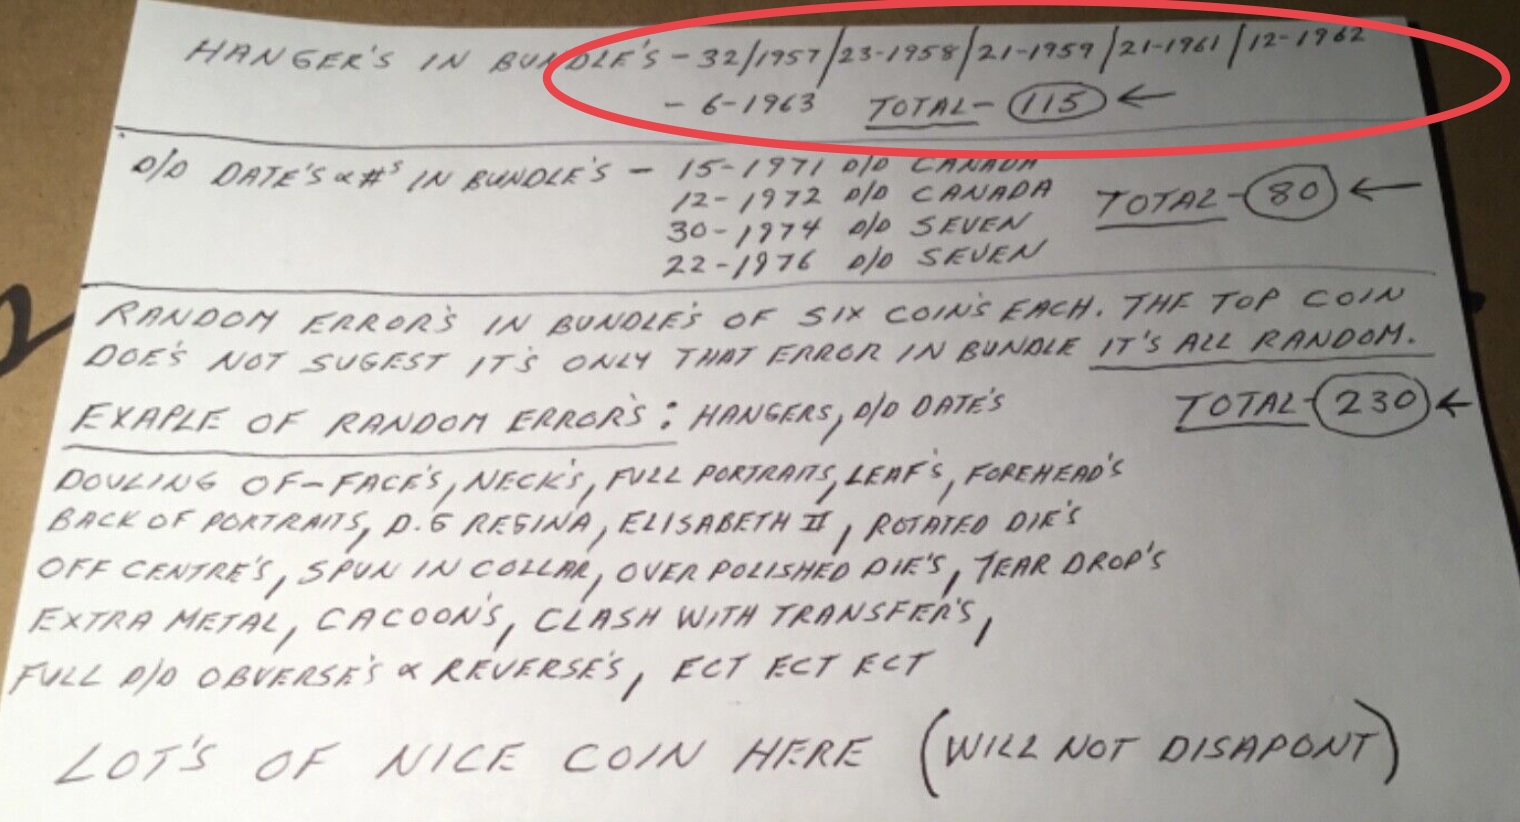 HANGER'S IN BUNDLE'S - 32/1957/23-1958/21-1959/21-1961/12-1962
- 6-1963 TOTAL- 115 ←
D/D DATE'S & #'S IN BUNDLE'S - 15-1971 D/D CANADA
12-1972 D/D CANADA TOTAL- 80 ←
30-1974 D/D SEVEN
22-1976 D/D SEVEN
RANDOM ERROR'S IN BUNDLE'S OF SIX COIN'S EACH. THE TOP COIN
DOE'S NOT SUGEST IT'S ONLY THAT ERROR IN BUNDLE IT'S ALL RANDOM.
EXAPLE OF RANDOM ERROR'S: HANGERS, D/D DATE'S TOTAL- 230 ←
DOULING OF-FACE'S, NECK'S, FULL PORTRAITS, LEAF'S, FOREHEAD'S
BACK OF PORTRAITS, D.G REGINA, ELISABETH II, ROTATED DIE'S
OFF CENTRE'S, SPUN IN COLLAR, OVER POLISHED DIE'S, TEAR DROP'S
EXTRA METAL, CACOON'S, CLASH WITH TRANSFER'S,
FULL D/D OBVERSE'S & REVERSE'S, ECT ECT ECT
LOT'S OF NICE COIN HERE (WILL NOT DISAPONT)